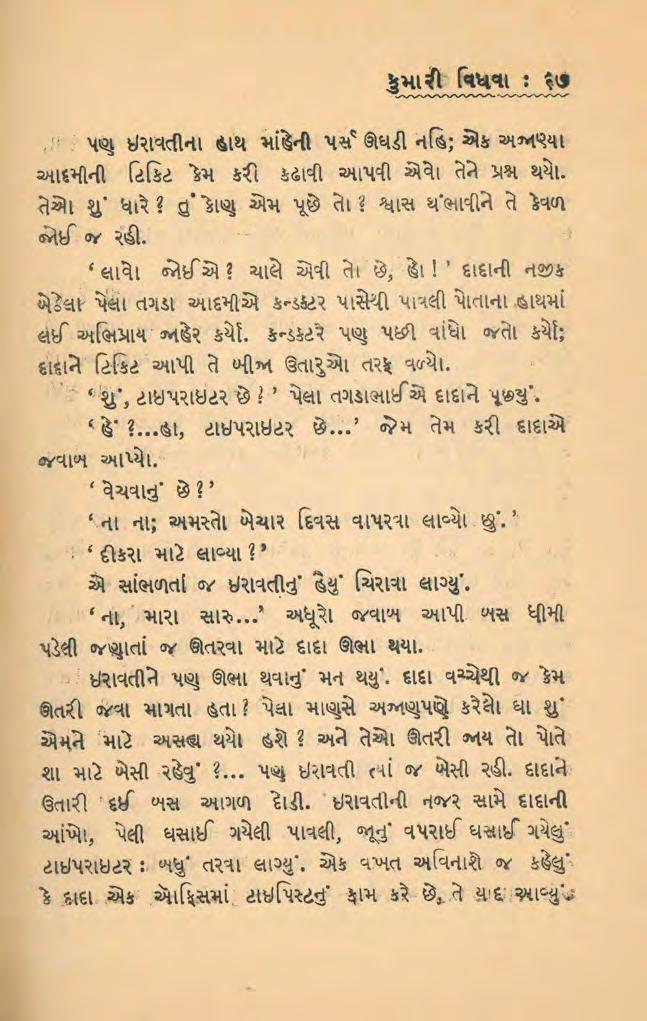 કુમારી વિધવા : ૬૭
પણ ઇરાવતીના હાથ માંહેની પર્સ ઊઘડી નહિ; એક અજાણ્યા
આદમીની ટિકિટ કેમ કરી કઢાવી આપવી એવો તેને પ્રશ્ન થયો.
તેઓ શું ધારે ? તું કોણ એમ પૂછે તો ? શ્વાસ થંભાવીને તે કેવળ
જોઈ જ રહી.
‘ લાવો જોઈએ ? ચાલે એવી તો છે, હો ! ’ દાદાની નજીક
બેઠેલા પેલા તગડા આદમીએ કન્ડક્ટર પાસેથી પાવલી પોતાના હાથમાં
લઈ અભિપ્રાય જાહેર કર્યો. કન્ડક્ટરે પણ પછી વાંધો જતો કર્યો;
દાદાને ટિકિટ આપી તે બીજા ઉતારુઓ તરફ વળ્યો.
‘ શું, ટાઇપરાઇટર છે ? ’ પેલા તગડાભાઈએ દાદાને પૂછ્યું.
‘ હેં ?...હા, ટાઇપરાઇટર છે...’ જેમ તેમ કરી દાદાએ
જવાબ આપ્યો.
‘ વેચવાનું છે ? ’
‘ ના ના; અમસ્તો બેચાર દિવસ વાપરવા લાવ્યો છું. ’
‘ દીકરા માટે લાવ્યા ? ’
એ સાંભળતાં જ ઇરાવતીનું હૈયું ચિરાવા લાગ્યું.
‘ ના, મારા સારુ...’ અધૂરો જવાબ આપી બસ ધીમી
પડેલી જણાતાં જ ઊતરવા માટે દાદા ઊભા થયા.
ઇરાવતીને પણ ઊભા થવાનું મન થયું. દાદા વચ્ચેથી જ કેમ
ઊતરી જવા માગતા હતા ? પેલા માણસે અજાણપણે કરેલો ઘા શું
એમને માટે અસહ્ય થયો હશે ? અને તેઓ ઊતરી જાય તો પોતે
શા માટે બેસી રહેવું ?... પણ ઇરાવતી ત્યાં જ બેસી રહી. દાદાને
ઉતારી દઈ બસ આગળ દોડી. ઇરાવતીની નજર સામે દાદાની
આંખો, પેલી ઘસાઈ ગયેલી પાવલી, જૂનું વપરાઈ ઘસાઈ ગયેલું
ટાઇપરાઇટર : બધું તરવા લાગ્યું. એક વખત અવિનાશે જ કહેલું
કે દાદા એક ઑફિસમાં ટાઇપિસ્ટનું કામ કરે છે, તે યાદ આવ્યું.